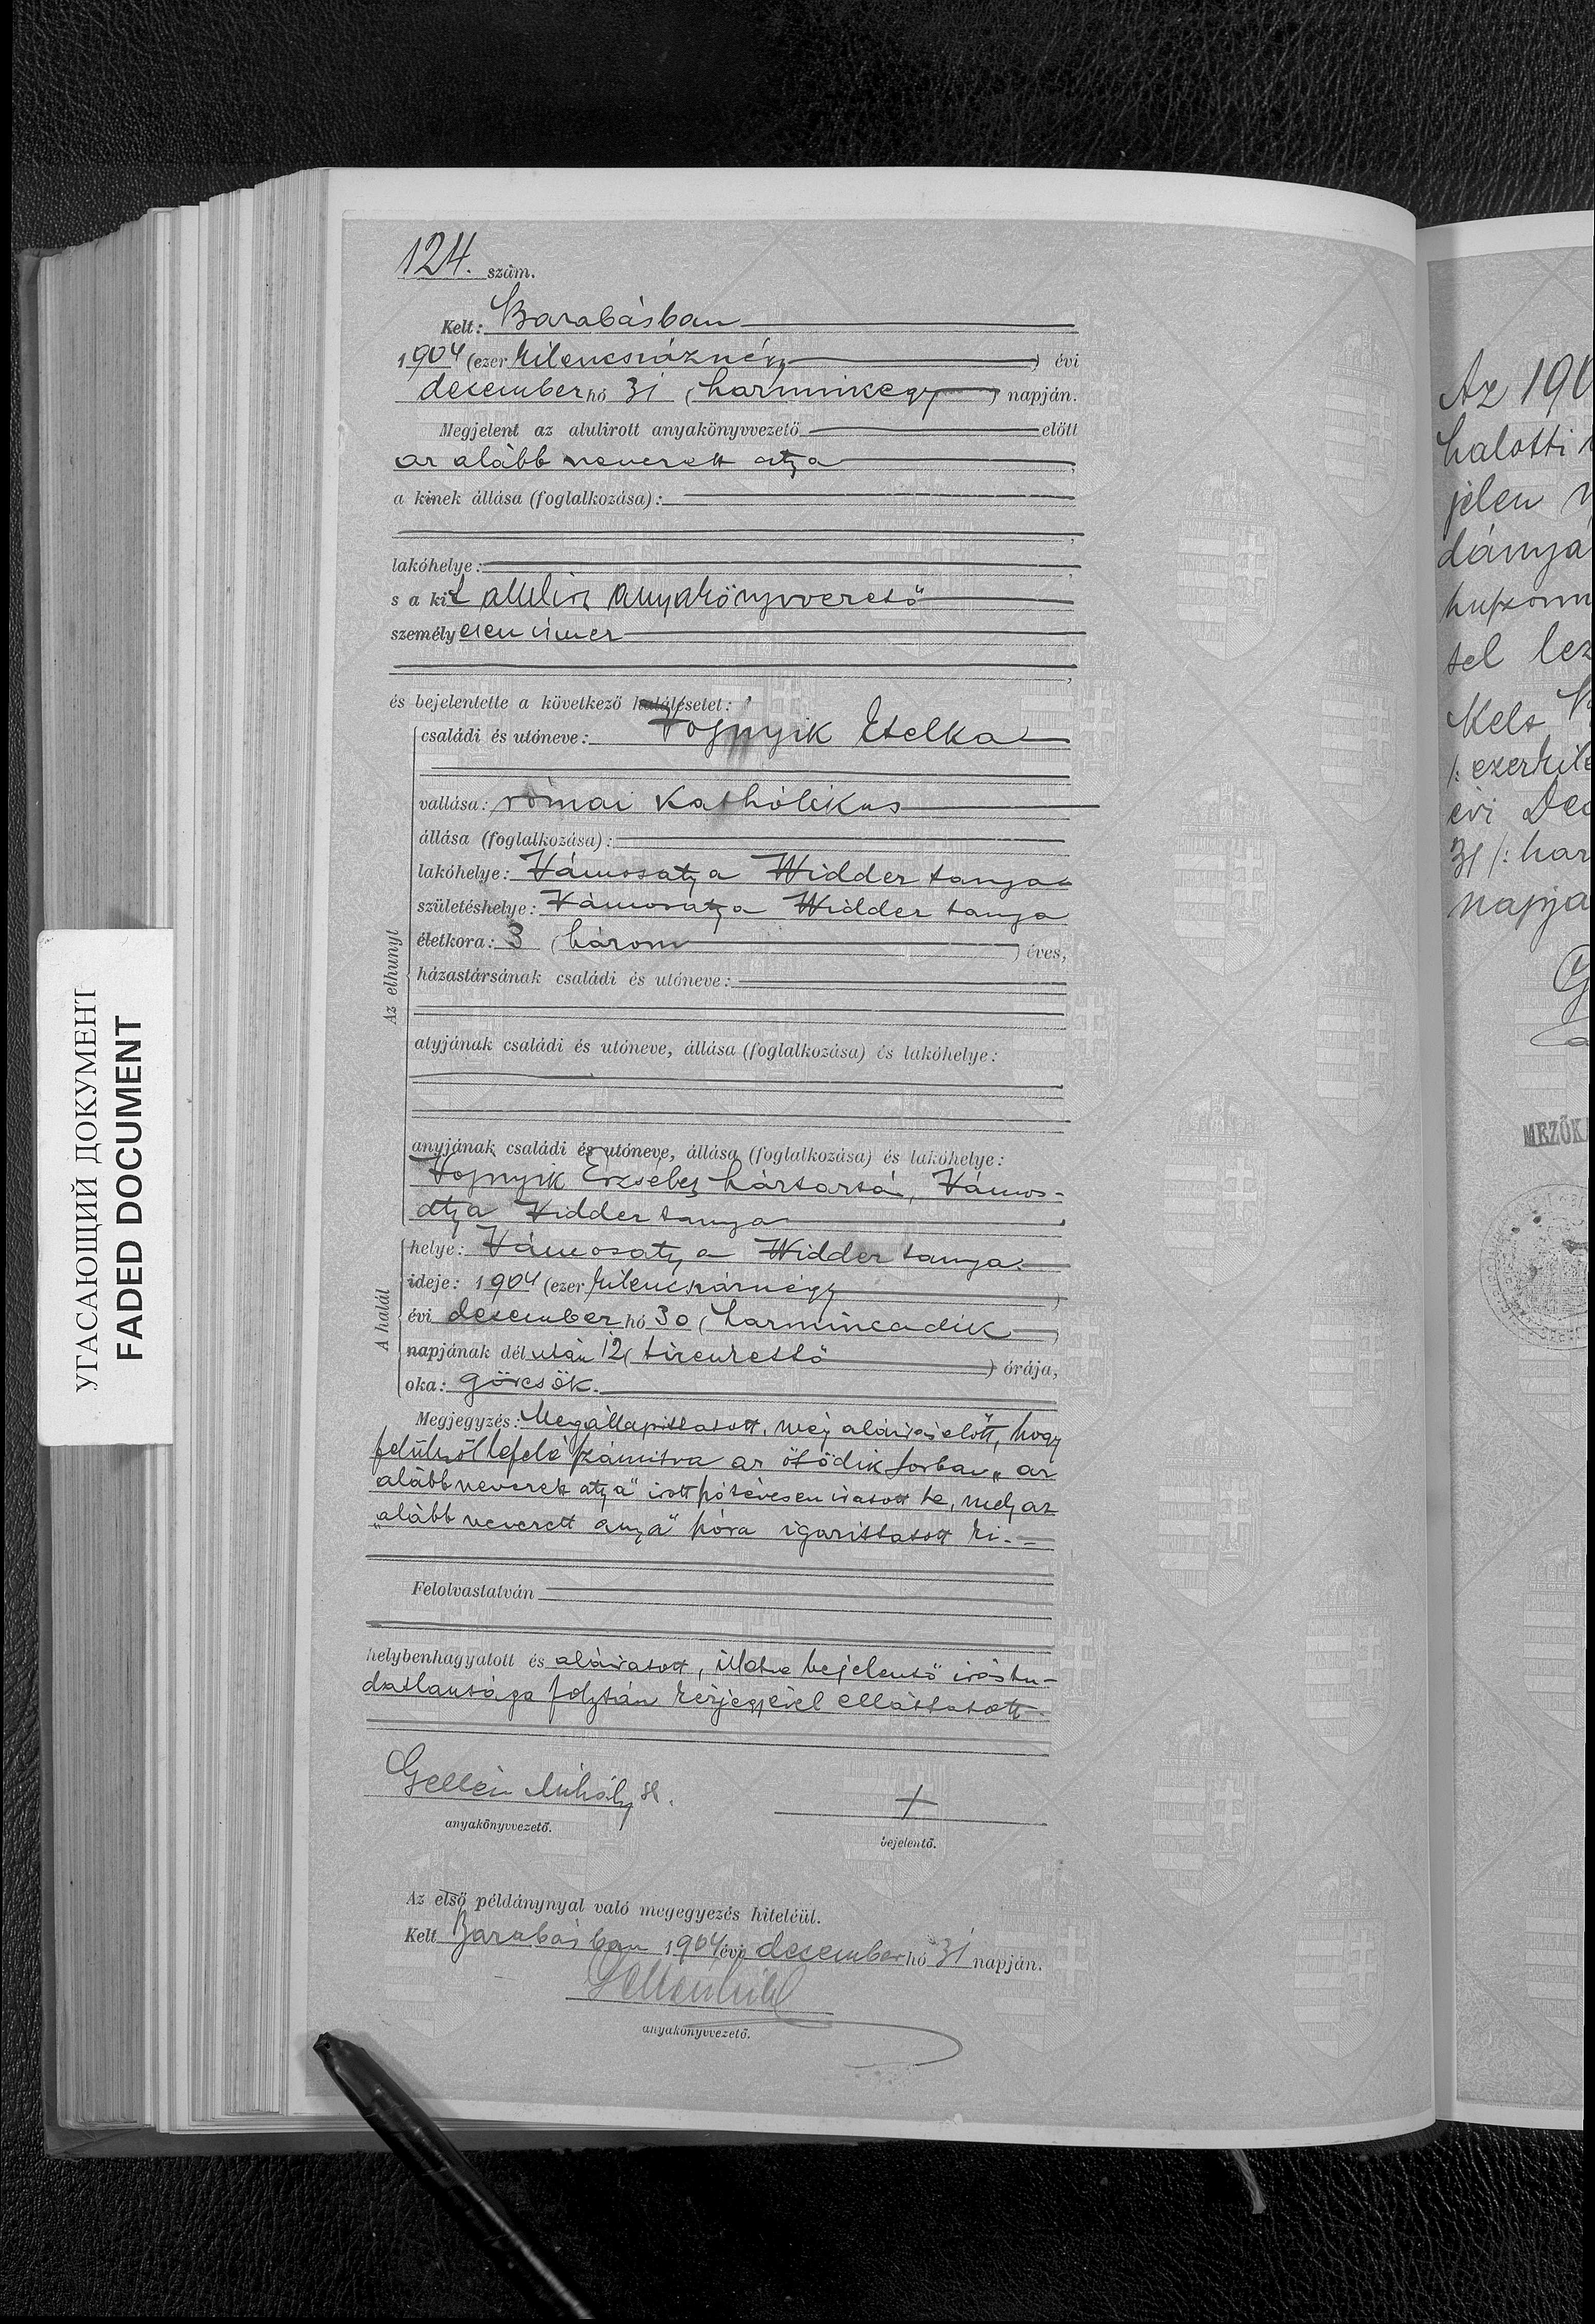 124. szám.
Kelt: Barabásban
1904 (ezer kilencszáznégy) évi
december hó 31 (harminczegy) napján.
Megjelent az alulirott anyakönyvvezető előtt
az alább nevezett atya
a kinek állása (foglalkozása):
lakóhelye:
s a kit alulirt anyakönyvvezető
személyesen ismer
és bejelentette a következő halálesetet:
családi és utóneve: Vojnyik Etelka
vallása: római katholikus
állása (foglalkozása):
lakóhelye: Vámosatya Widder tanya
születéshelye: Vámosatya Widder tanya
életkora: 3 (három) éves,
házastársának családi és utóneve:
Az elhunyt
atyjának családi és utóneve, állása (foglalkozása) és lakóhelye:
anyjának családi és utóneve, állása (foglalkozása) és lakóhelye:
Vojnyik Erzsébet háztartá, Vámos-
atya Vidder tanya
helye: Vámosatya Widder tanya.
ideje: 1904 (ezer kilencszáznégy)
A halál
évi december hó 30 (harmincadik)
napjának délután 12 (tizenkettő) órája,
oka: görcsök.
Megjegyzés: Megállapittatott, még aláirás előtt, hogy
felülről lefelé számitva az ötödik sorban „az
alább nevezett atya" szó tévesen iratott be, mely az
„alább nevezett anya" szóra igazittatott ki. -
Felolvastatván
helybenhagyatott és aláiratott, illetve bejelentő irástu-
datlansága folytán kézjegyével elláttatott.
Gellén Mihály
+
anyakönyvvezető.
bejelentő.
Az első példánynyal való megegyezés hiteléül.
Kelt Barabásban 1904 évi december hó 31 napján.
anyakönyvvezető.
УГАСАЮЩИЙ ДОКУМЕНТ
FADED DOCUMENT
Az 190
halotti
jelen
dánya
huszonn
tel lez
Kelt
/: ezerkile
évi Dec
31 /: har
napja
MEZŐK